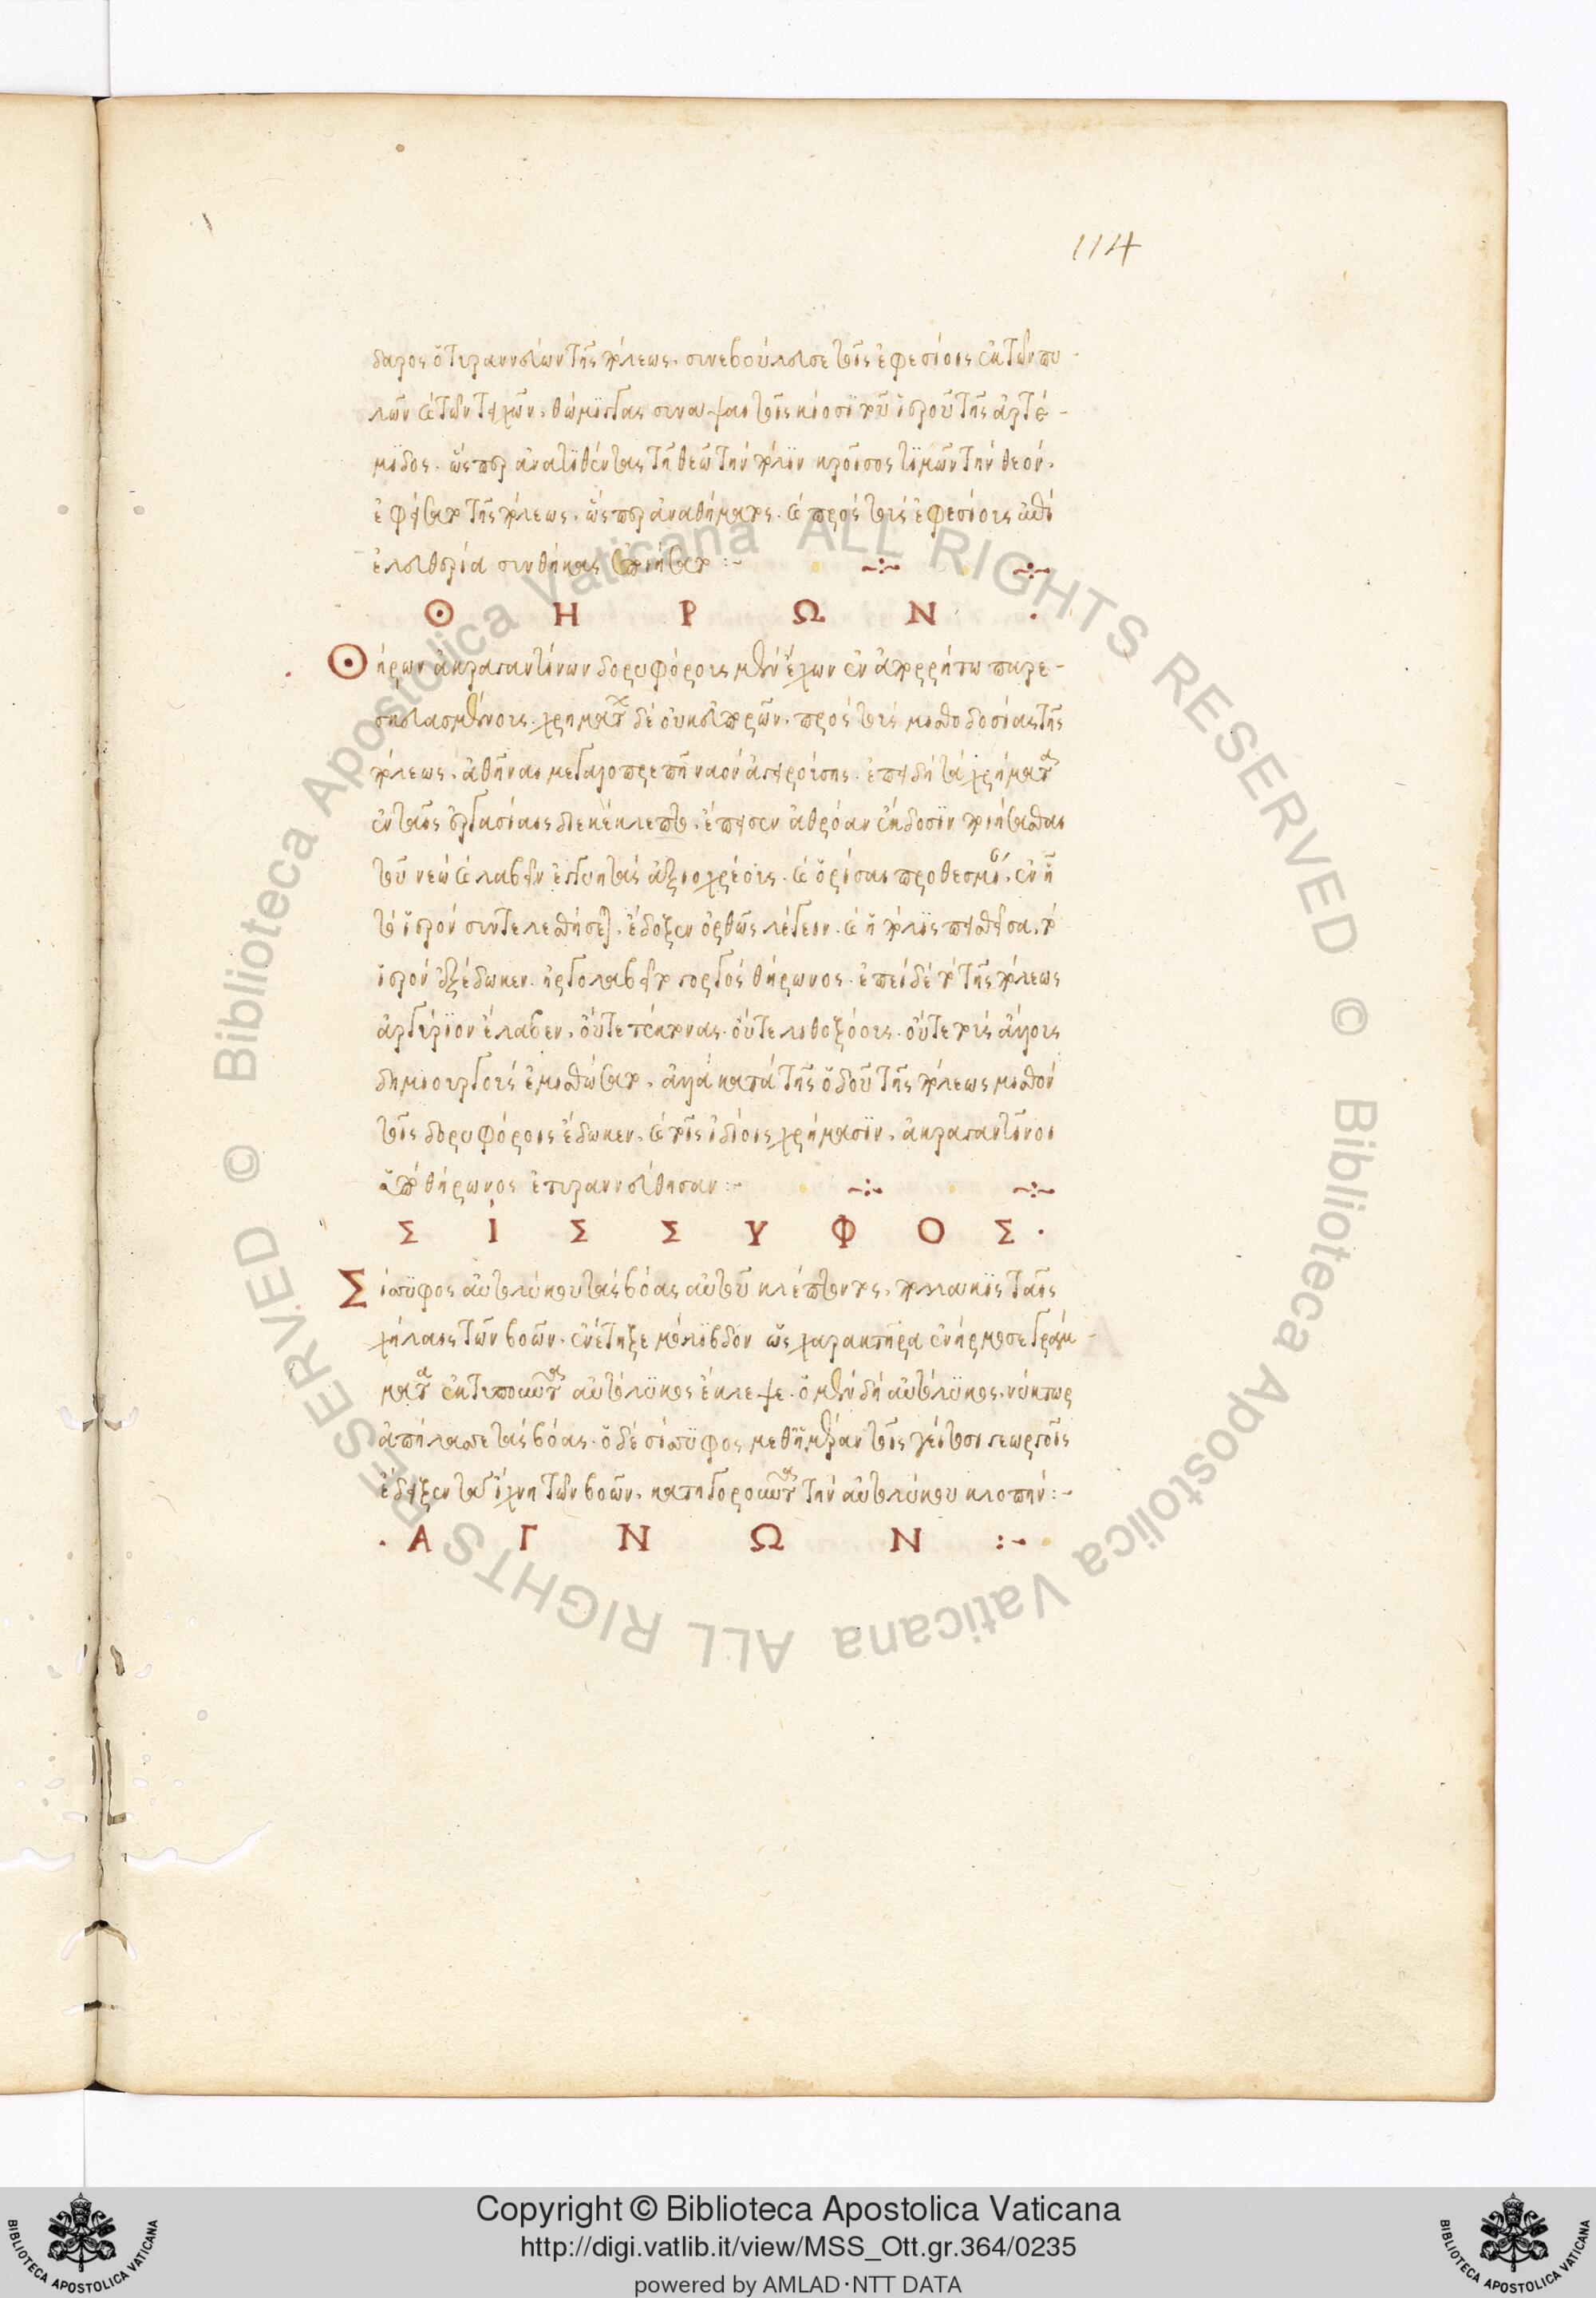 114
δαρος ὁ τυραννεύων τῆς πόλεως. συνεβούλευσε τοῖς ἐφεσίοις ἐκ τῶν πυ-
λῶν καὶ τῶν τειχῶν. θώμιγγας συνάψαι τοῖς κίοσι τοῦ ἱεροῦ τῆς ἀρτέ-
μιδος. ὥσπερ ἀνατιθέντας τῆ θεῶ τὴν πόλιν κροῖσος τιμῶν τὴν θεόν.
ἐφείσατο τῆς πόλεως. ὥσπερ ἀναθήματος. καὶ πρὸς τοὺς ἐφεσίους ἐπὶ
ἐλευθερία συνθήκας ἐποιήσατο :-
Θ Η Ρ Ω Ν .
Θήρων ἀκραγαντίνων δορυφόρους μὲν ἔχων ἐν ἀπορρήτω παρε-
σκευασμένους. χρημάτων δὲ οὐκ εὐπορῶν. πρὸς τὰς μισθοδοσίας τῆς
πόλεως. ἀθηνᾶι μεγαλοπρεπῆ ναὸν ἀγειρούσης. ἐπειδὴ τὰ χρήματα
ἐν ταῖς ἐργασίαις διεκέκλεπτο. ἔπεισεν ἀθρόαν ἔκδοσιν ποιήσασθαι
τοῦ νεὼ καὶ λαβεῖν ἐγγυητὰς ἀξιοχρέους. καὶ ὁρίσαι προθεσμίαν. ἐν ᾗ
τὸ ἱερὸν συντελεσθήσεται. ἔδοξεν ὀρθῶς λέγειν. καὶ ἡ πόλις πεισθεῖσα. τὸ
ἱερὸν ἐξέδωκεν. ἠργολάβει γοργὸς θήρωνος. ἐπεὶ δὲ τὸ τῆς πόλεως
ἀργύριον ἔλαβεν. οὔτε τέκτονας. οὔτε λιθοξόους. οὔτε τοὺς ἄλλους
δημιουργοὺς ἐμισθώσατο. ἀλλὰ κατὰ τῆς ὁδοῦ τῆς πόλεως μισθὸν
τοῖς δορυφόροις ἔδωκεν. καὶ τοῖς ἰδίοις χρήμασιν. ἀκραγαντῖνοι
ὑπὸ θήρωνος ἐτυραννεύθησαν :-
Σ Ι Σ Σ Υ Φ Ο Σ .
Σίσυφος αὐτολύκου τὰς βόας αὐτοῦ κλέπτοντος. πολλάκις ταῖς
χήλαις τῶν βοῶν. ἐνέτηξε μόλιβδον ὡς χαρακτῆρα ἐνήρμοσε γράμ-
ματα ἐκτυποῦντα αὐτόλυκος ἔκλεψε. ὁ μὲν δὴ αὐτόλυκος. νύκτωρ
ἀπήλασε τὰς βόας. ὁ δὲ σίσυφος μεθ ἡμέραν τοῖς γείτοσι γεωργοῖς
ἔδειξεν τὰ ἴχνη τῶν βοῶν. κατηγοροῦντα τὴν αὐτολύκου κλοπήν :-
. Α Γ Ν Ω Ν :-
Copyright © Biblioteca Apostolica Vaticana
http://digi.vatlib.it/view/MSS_Ott.gr.364/0235
powered by AMLAD·NTT DATA
BIBLIOTECA APOSTOLICA VATICANA
BIBLIOTECA APOSTOLICA VATICANA
© Biblioteca Apostolica Vaticana ALL RIGHTS RESERVED
© Biblioteca Apostolica Vaticana ALL RIGHTS RESERVED